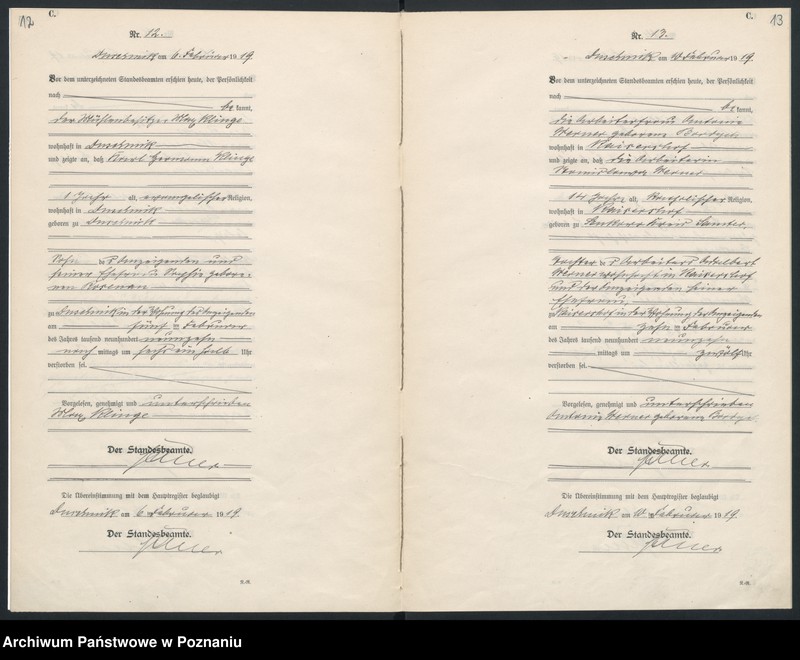 12
C.
Nr. 12.
Duschnik am 6. Februar 1919
Vor dem unterzeichneten Standesbeamten erschien heute, der Persönlichkeit
nach
be kannt,
der Mühlenbesitzer Max Klinge
wohnhaft in Duschnik
und zeigte an, daß Karl Hermann Klinge
1 Jahr alt, evangelischer Religion,
wohnhaft in Duschnik
geboren zu Duschnik
Sohn des Anzeigenden und
seiner Ehefrau Sophie gebore-
nen Rosenau
zu Duschnik in der Wohnung des Anzeigenden
am fünf ten Februar
des Jahres tausend neunhundert neunzehn
nach mittags um sechs ein halb Uhr
verstorben sei.
Vorgelesen, genehmigt und unterschrieben
Max Klinge
Der Standesbeamte.
Die Übereinstimmung mit dem Hauptregister beglaubigt
Duschnik am 6. Februar 1919.
Der Standesbeamte.
13
C.
Nr. 13.
Duschnik am Februar 1919.
Vor dem unterzeichneten Standesbeamten erschien heute, der Persönlichkeit
nach
be kannt,
die Arbeiterfrau Antonie
Werner geborene
wohnhaft in Kaisershof
und zeigte an, daß die Arbeiterin
Stanislawa Werner
14 Jahre alt, katholischer Religion,
wohnhaft in Kaisershof
geboren zu Kreis Samter
Tochter des Arbeiters Adalbert
Werner wohnhaft in Kaisershof
und der Anzeigenden seiner
Ehefrau,
zu Kaisershof in der Wohnung der Anzeigenden
am zehn ten Februar
des Jahres tausend neunhundert neunzehn
mittags um zwölf Uhr
verstorben sei.
Vorgelesen, genehmigt und unterschrieben
Antonie Werner geborene
Der Standesbeamte.
Die Übereinstimmung mit dem Hauptregister beglaubigt
Duschnik am Februar 1919.
Der Standesbeamte.
Archiwum Państwowe w Poznaniu